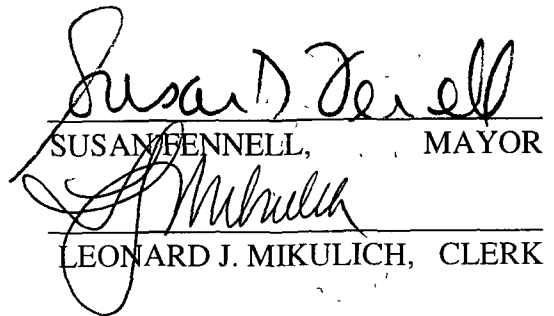 Susan D. Fennell
SUSAN FENNELL, MAYOR
L J Mikulich
LEONARD J. MIKULICH, CLERK